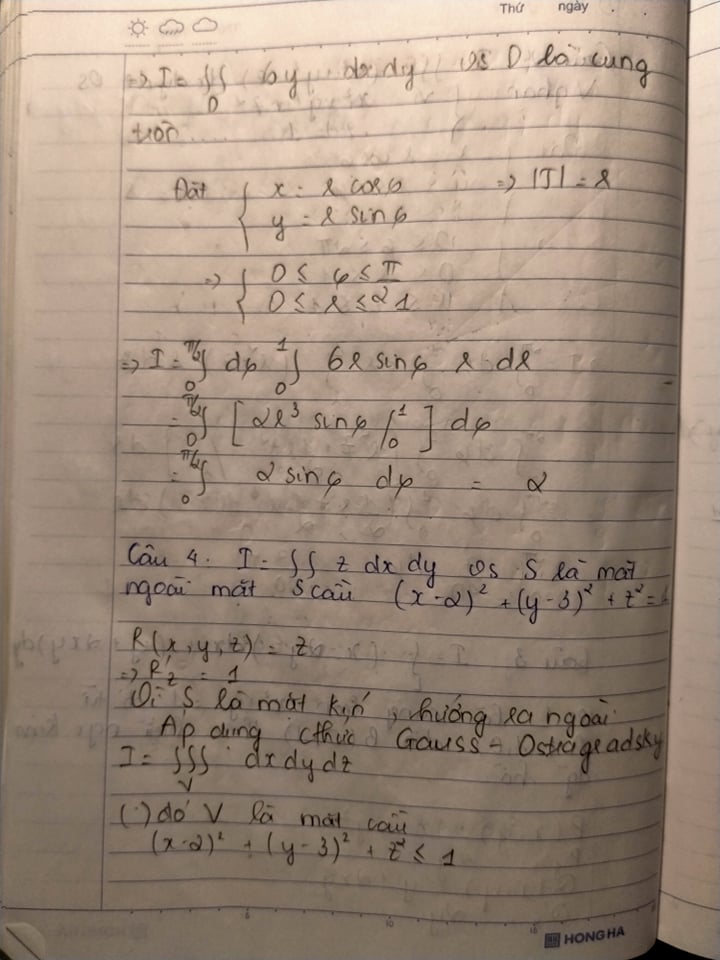 Thứ ngày
=> I = ∬ 6y dx dy vs D là cung
D
tròn
Đặt { x = r cosφ => |J| = r
{ y = r sinφ
=> { 0 ≤ φ ≤ π
{ 0 ≤ r ≤ 1
=> I = ∫₀^{π/2} dφ ∫₀^1 6r sinφ r dr
= ∫₀^{π/2} [2r³ sinφ |₀^1] dφ
= ∫₀^{π/2} 2 sinφ dφ = 2
Câu 4. I = ∬ z dx dy vs S là mặt
ngoài mặt S cầu (x-2)² + (y-3)² + z² =
R(x,y,z) = z
=> R'z = 1
Vì S là mặt kín, hướng ra ngoài
Áp dụng cthức Gauss - Ostrageadsky
I = ∭ dx dy dz
V
(.) đó V là mặt cầu
(x-2)² + (y-3)² + z² ≤ 1
6 10 15
HONG HA